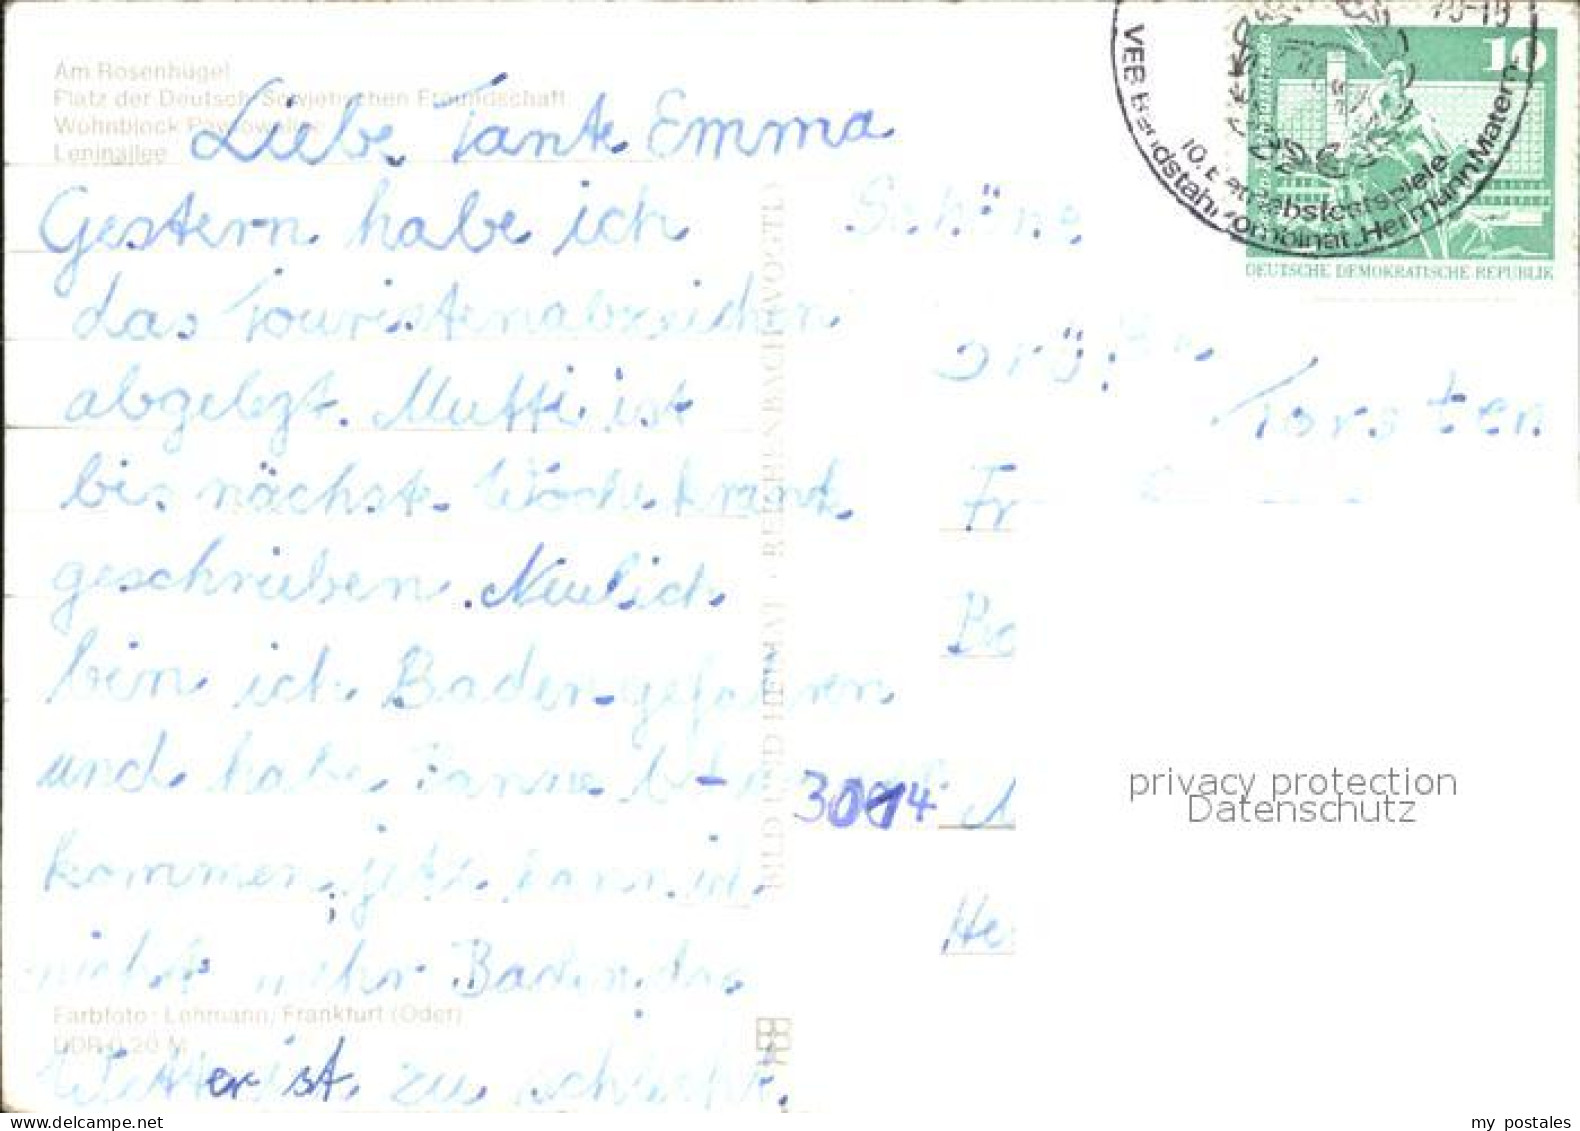 Am Rosenhügel
Platz der Deutsch-Sowjetischen Freundschaft
Wohnblock Pawlowallee
Leninallee
Liebe Tante Emma
Gestern habe ich
das Touristenabzeichen
abgelegt. Mutti ist
bis nächste Woche krank
geschrieben. Neulich
bin ich Baden gefahren
und habe
kommen, jetzt kann ich
nicht mehr Baden, das
Wetter ist zu schlecht.
Farbfoto: Lehmann, Frankfurt (Oder)
DDR 0,20 M
BILD UND HEIMAT · REICHENBACH (VOGTL)
Schöne
Grüße
Torsten
Fr
Ba
He
10
DEUTSCHE DEMOKRATISCHE REPUBLIK
VEB Bandstahlkombinat "Hermann Matern"
10. Betriebsfestspiele
privacy protection
Datenschutz
my postales